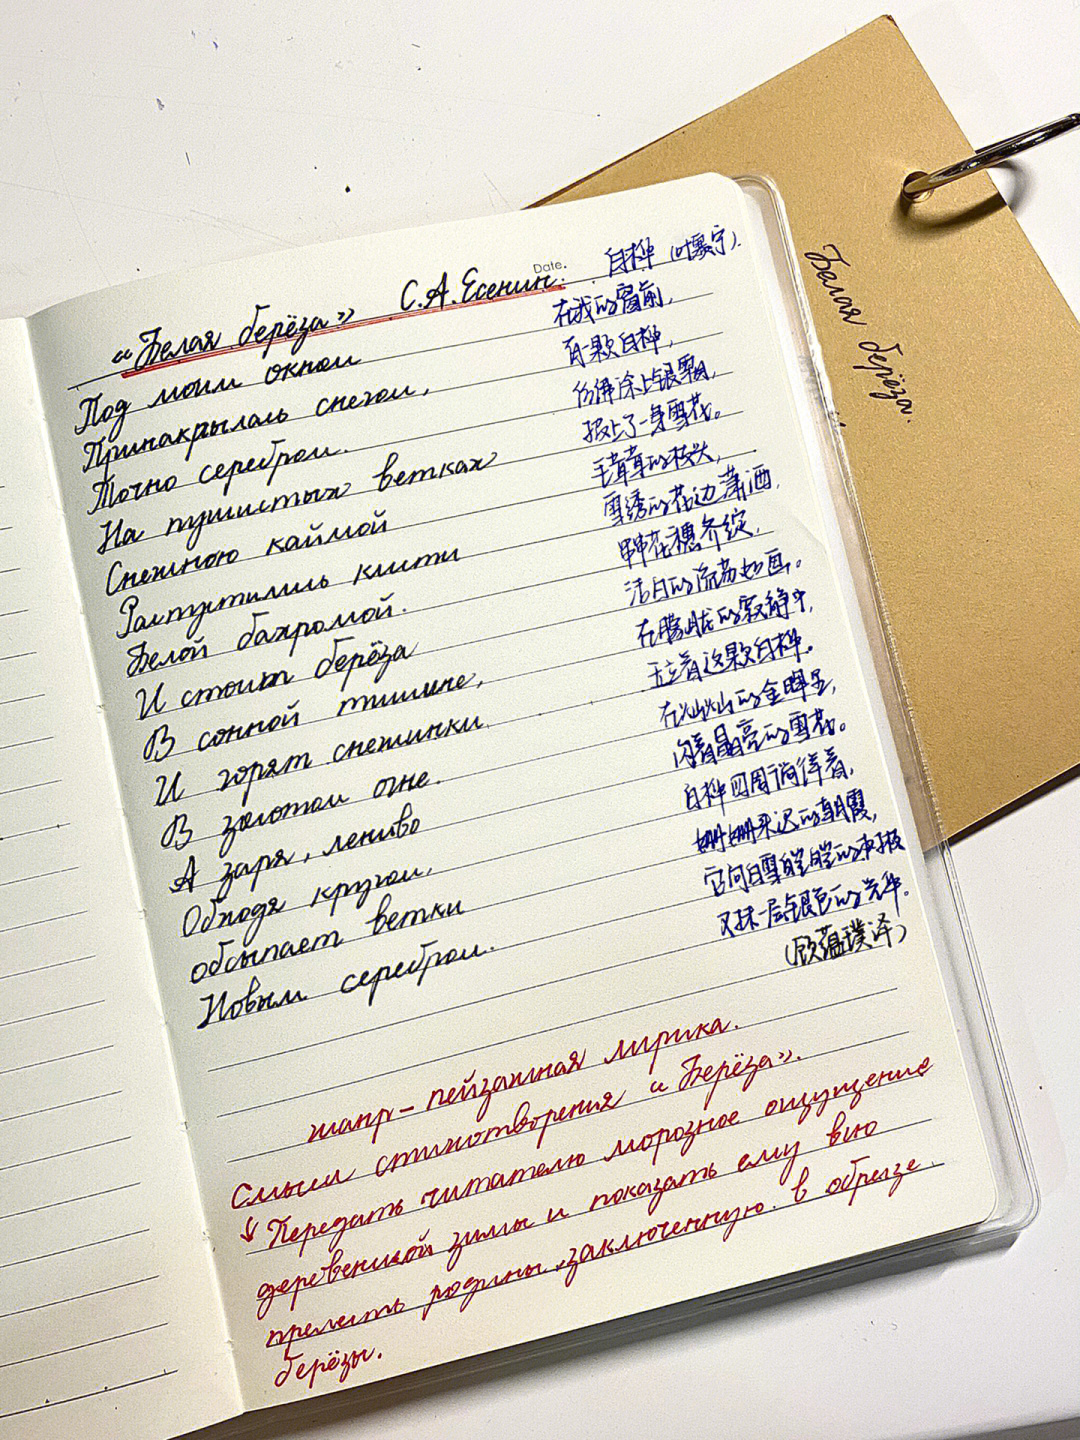 Date.
«Белая берёза» С.А. Есенин.
Под моим окном
Принакрылась снегом,
Точно серебром.
На пушистых ветках
Снежною каймой
Распустились кисти
Белой бахромой.
И стоит берёза
В сонной тишине,
И горят снежинки
В золотом огне.
А заря, лениво
Обходя кругом,
обсыпает ветки
Новым серебром.
白桦 (叶赛宁).
在我的窗前,
有一颗白桦,
仿佛涂上银霜,
披上了一身雪花。
毛茸茸的枝头,
雪绣的花边潇洒,
串串花穗齐绽,
洁白的流苏如画。
在朦胧的寂静中,
玉立着这颗白桦。
在灿灿的金晖里,
闪着晶亮的雪花。
白桦四周徜徉着,
姗姗来迟的朝霞,
它向白雪皑皑的树枝
又抹一层银色的光华.
(顾蕴璞译)
жанр – пейзажная лирика.
Смысл стихотворения «Берёза».
↓ Передать читателю морозное ощущение
деревенской зимы и показать ему всю
прелесть родины, заключенную в образе
берёзы.
Белая берёза.